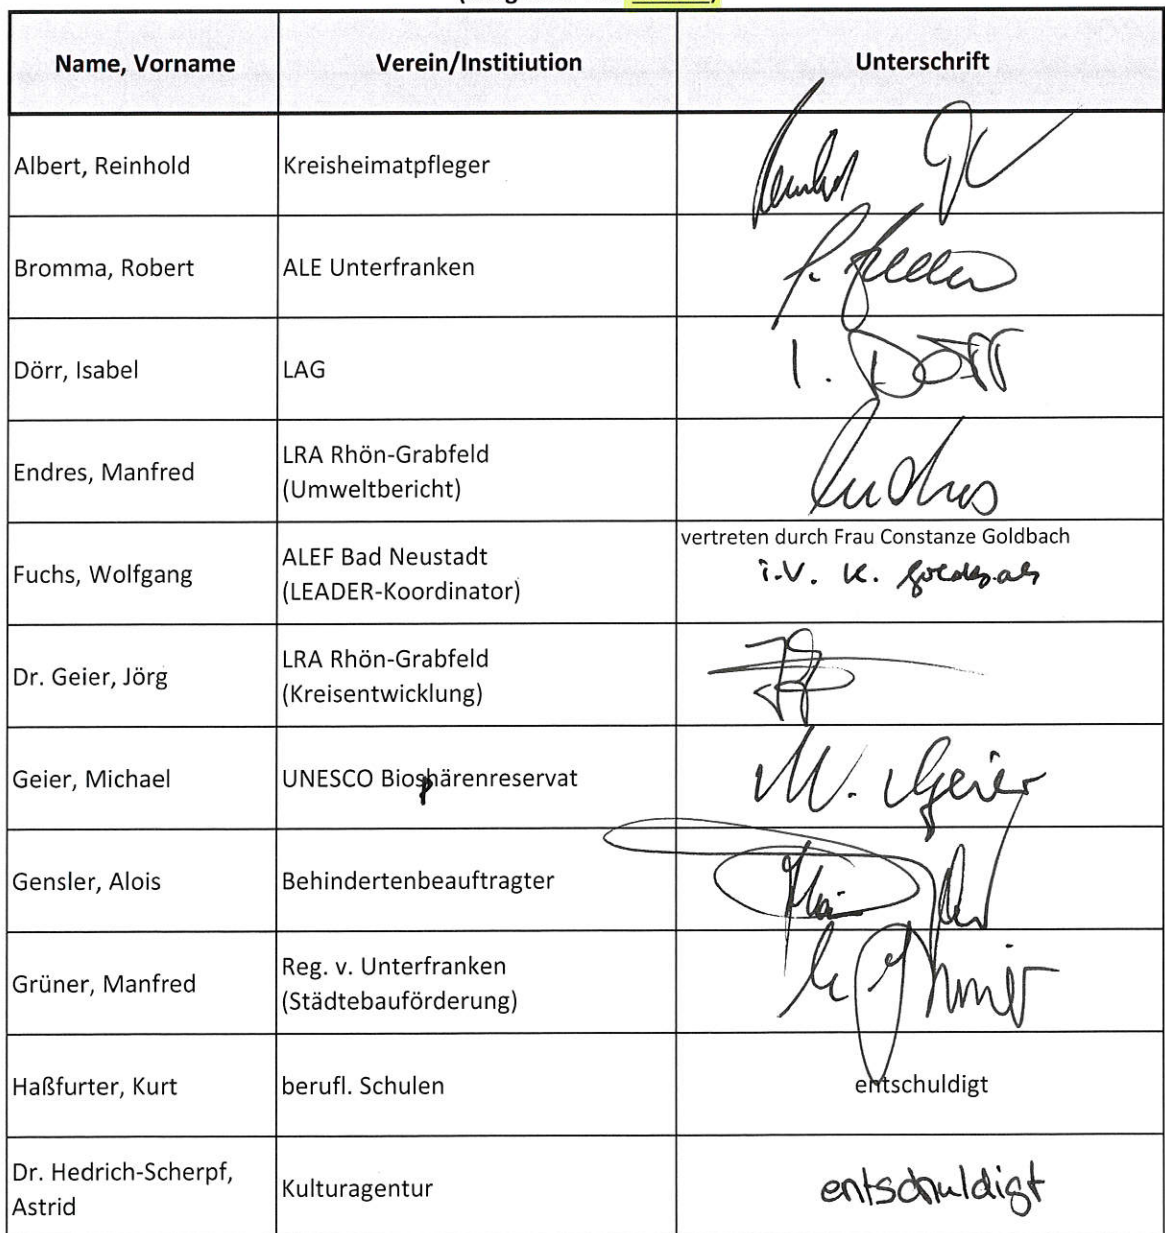 Name, Vorname Verein/Institiution Unterschrift
Albert, Reinhold Kreisheimatpfleger
Bromma, Robert ALE Unterfranken
Dörr, Isabel LAG I. Dörr
Endres, Manfred LRA Rhön-Grabfeld
(Umweltbericht) Endres
Fuchs, Wolfgang ALEF Bad Neustadt
(LEADER-Koordinator) vertreten durch Frau Constanze Goldbach
i.V. K. Goldbach
Dr. Geier, Jörg LRA Rhön-Grabfeld
(Kreisentwicklung)
Geier, Michael UNESCO Biosphärenreservat M. Geier
Gensler, Alois Behindertenbeauftragter
Grüner, Manfred Reg. v. Unterfranken
(Städtebauförderung)
Haßfurter, Kurt berufl. Schulen entschuldigt
Dr. Hedrich-Scherpf,
Astrid Kulturagentur entschuldigt